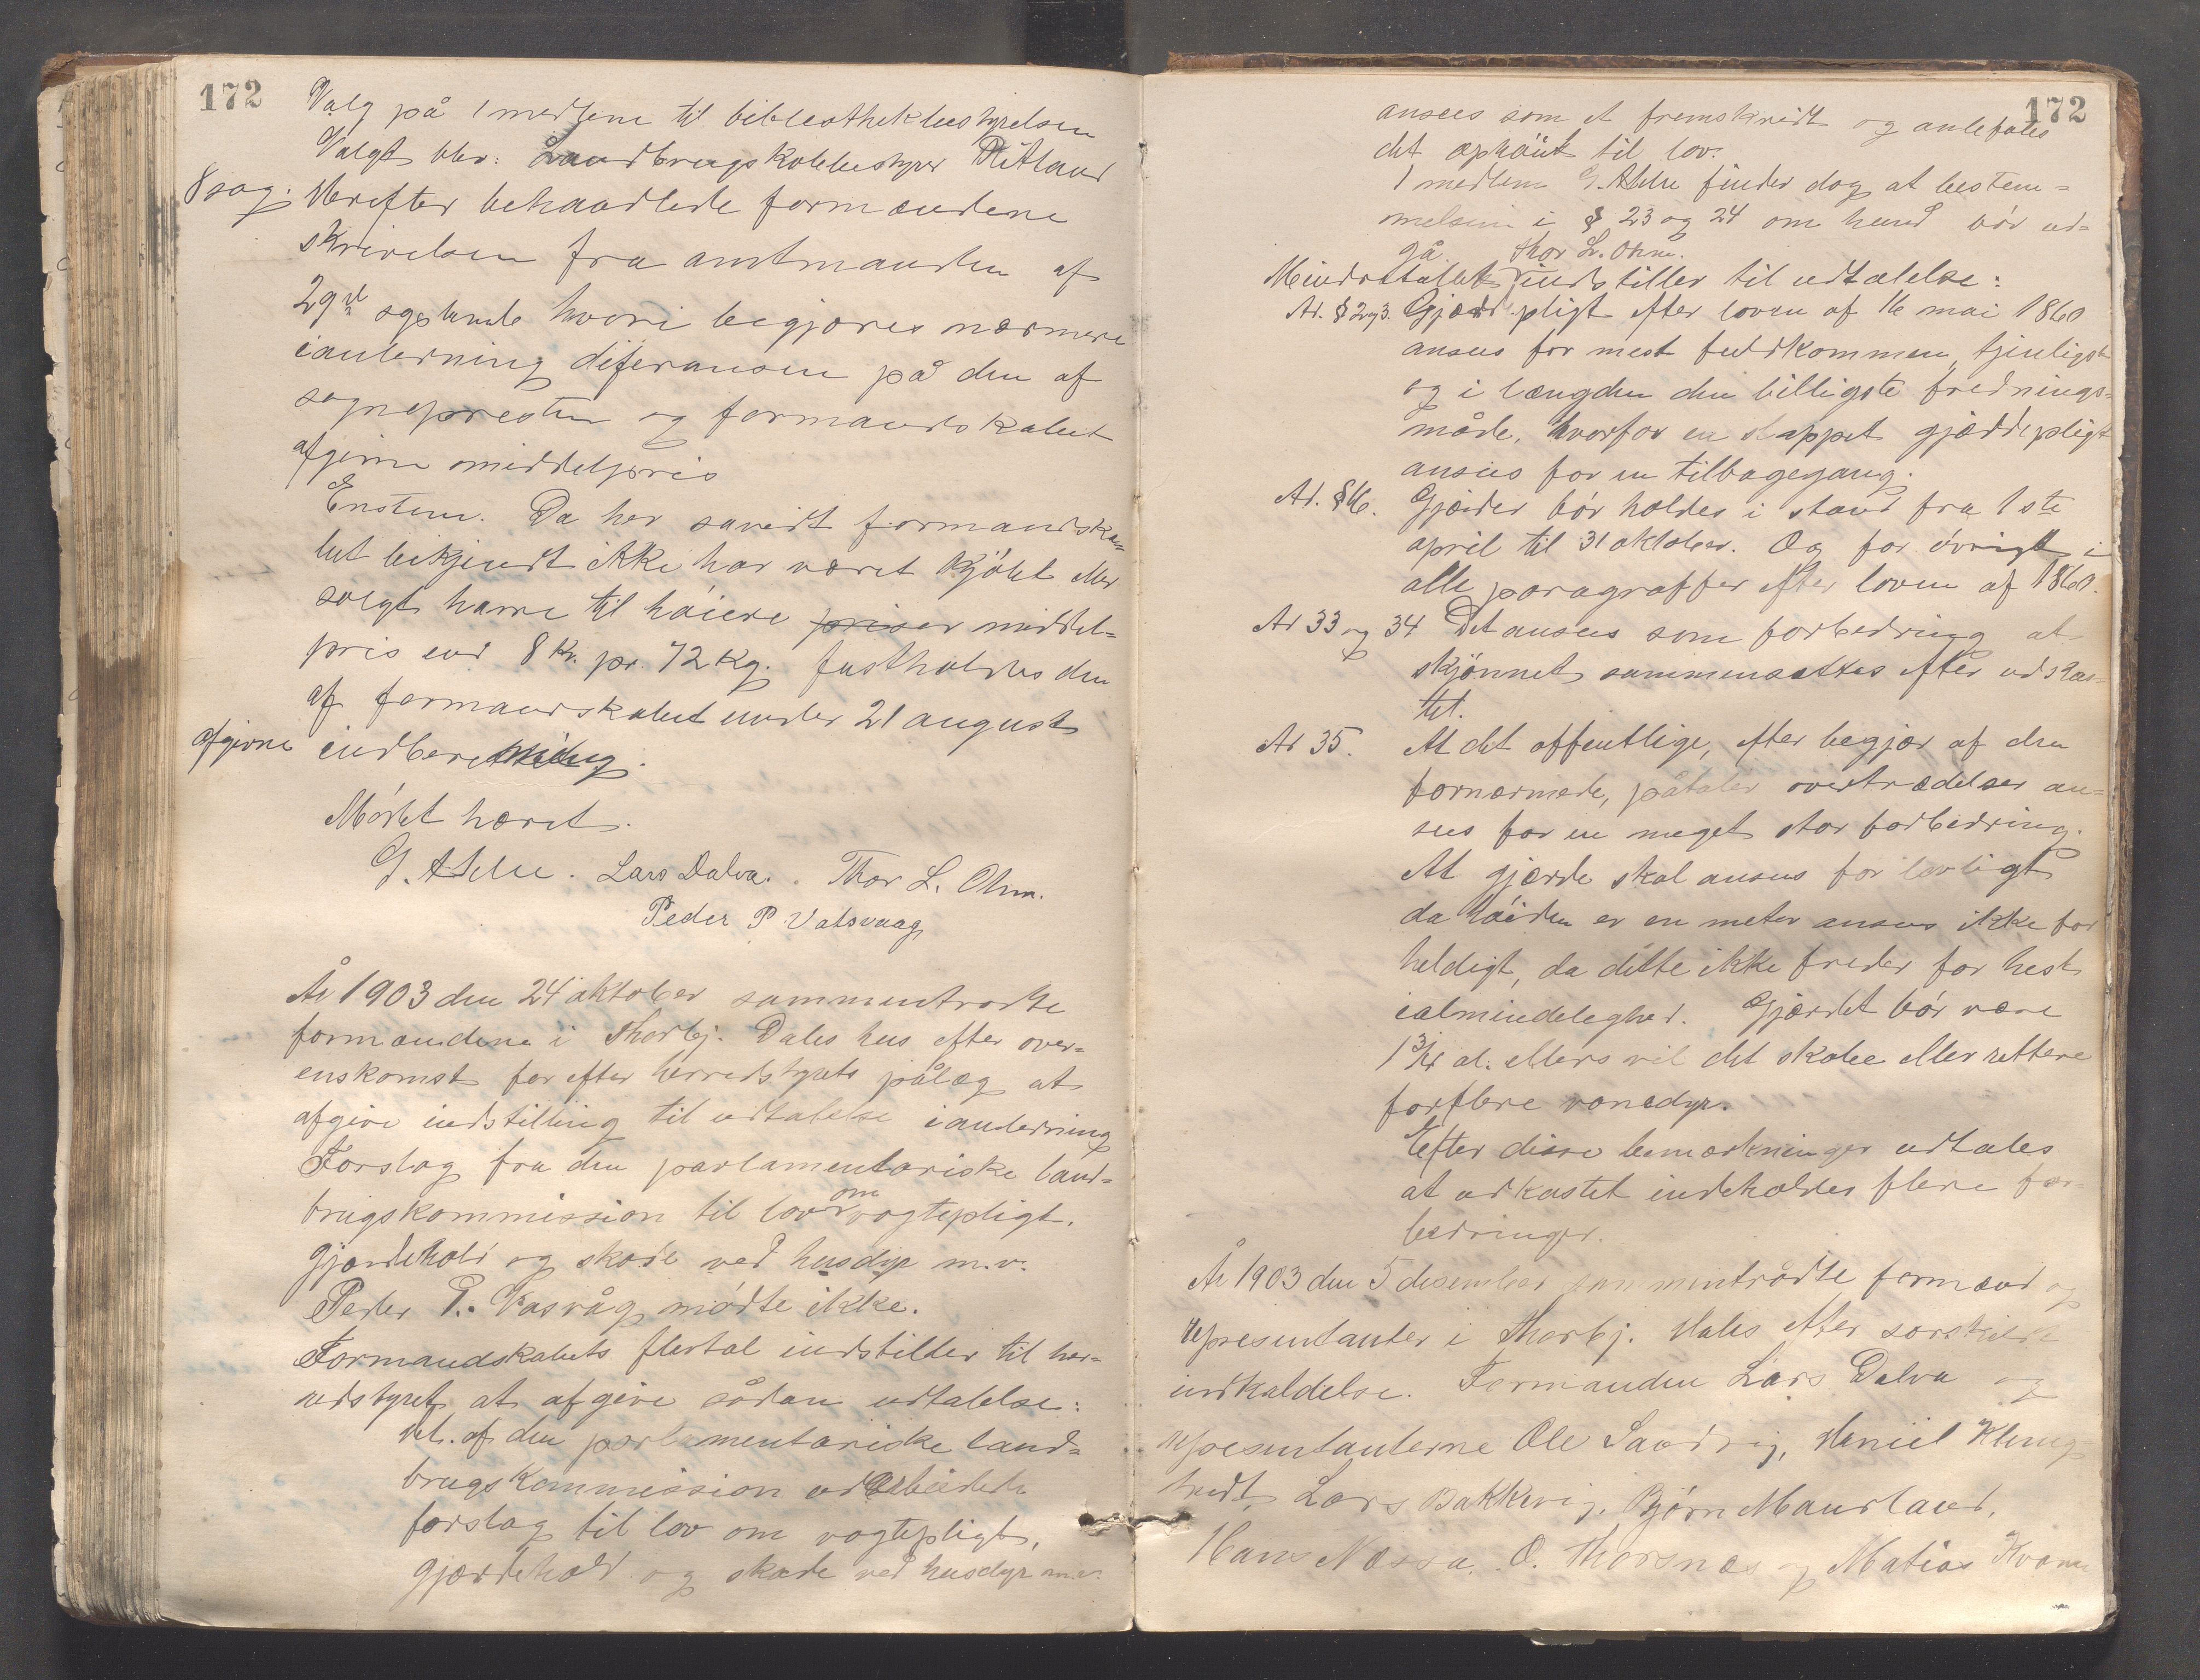 172
Valg på 1 medlem til bibliothekbestyrelsen
Valgt blev: Landbrugskolebestyrer Ritland
8 sag. Herefter behandlede formændene
skrivelsen fra amtmanden af
29de september hvori begjæres nærmere
ianledning diferansen på den af
sognepresten og formandskabet
afgivne middelpris
Enstem. Da her savidt formandska-
bet bekjendt ikke har været kjöbt eller
solgt havre til höiere priser middel-
pris end 8 kr. pr. 72 kg. fastholdes den
af formandskabet under 21 august
afgivne indberetning.
Mödet hævet.
G. Alne. Lars Dalva. Thor L. Ohm.
Peder P Vatsvaag
År 1903 den 24 oktober sammentrådte
formændene i Thorbj. Dales hus efter over-
enskomst for efter herredstyrets pålæg at
afgive indstilling til udtalelse ianledning
Forslag fra den parlamentariske land-
brugskommission til lov om vogtepligt,
gjærdehold og skade ved husdyr m.v.
Peder P. Vasvåg mödte ikke.
Formandskabets flertal indstiller til her-
redstyret at afgive sådan udtalelse:
Det af den parlamentariske land-
brugskommission udarbeidede
forslag til lov om vogtepligt,
gjærdehold og skade ved husdyr m.v.
172
ansees som et fremskridt og anbefales
det ophöiet til lov.
1 medlem G. Alne finder dog at bestem-
melsen i § 23 og 24 om hund bör ud-
gå.
Thor L. Ohm.
Mindretallet indstiller til udtalelse:
Ad. § 2 og 3. Gjærdepligt efter loven af 16 mai 1860
ansees for mest fuldkommen, tjenligst
og i længden den billigste frednings-
måde, hvorfor en slappet gjærdepligt
ansees for en tilbagegang.
Ad. § 6. Gjærder bör holdes i stand fra 1ste
april til 31 oktober. Og for övrigt i
alle paragraffer efter loven af 1860.
Ad 33 og 34 Det ansees som forbedring at
skjönnet sammensættes efter udkas-
tet.
Ad 35. At det offentlige, efter begjær af den
fornærmede, påtaler overtrædelser an-
sees for en meget stor forbedring.
At gjærde skal ansees for lovligt
da höiden er en meter ansees ikke for
heldigt, da dette ikke freder for hest
ialmindelighed. Gjærdet bör være
1 3/4 al. ellers vil det skabe eller rettere
forflere vanedyr.
Efter disse bemærkninger udtales
at udkastet indeholder flere for-
bedringer.
År 1903 den 5 desember sammentrådte formænd og
representanter i Thorbj. Dales efter særskildt
indkaldelse. Formanden Lars Dalva og
representanterne Ole Sandvig, Daniel Kling-
Lars Bakkevig, Björn Maurland,
Hans Næssa, O. Thorsnæs og Matias Kvame